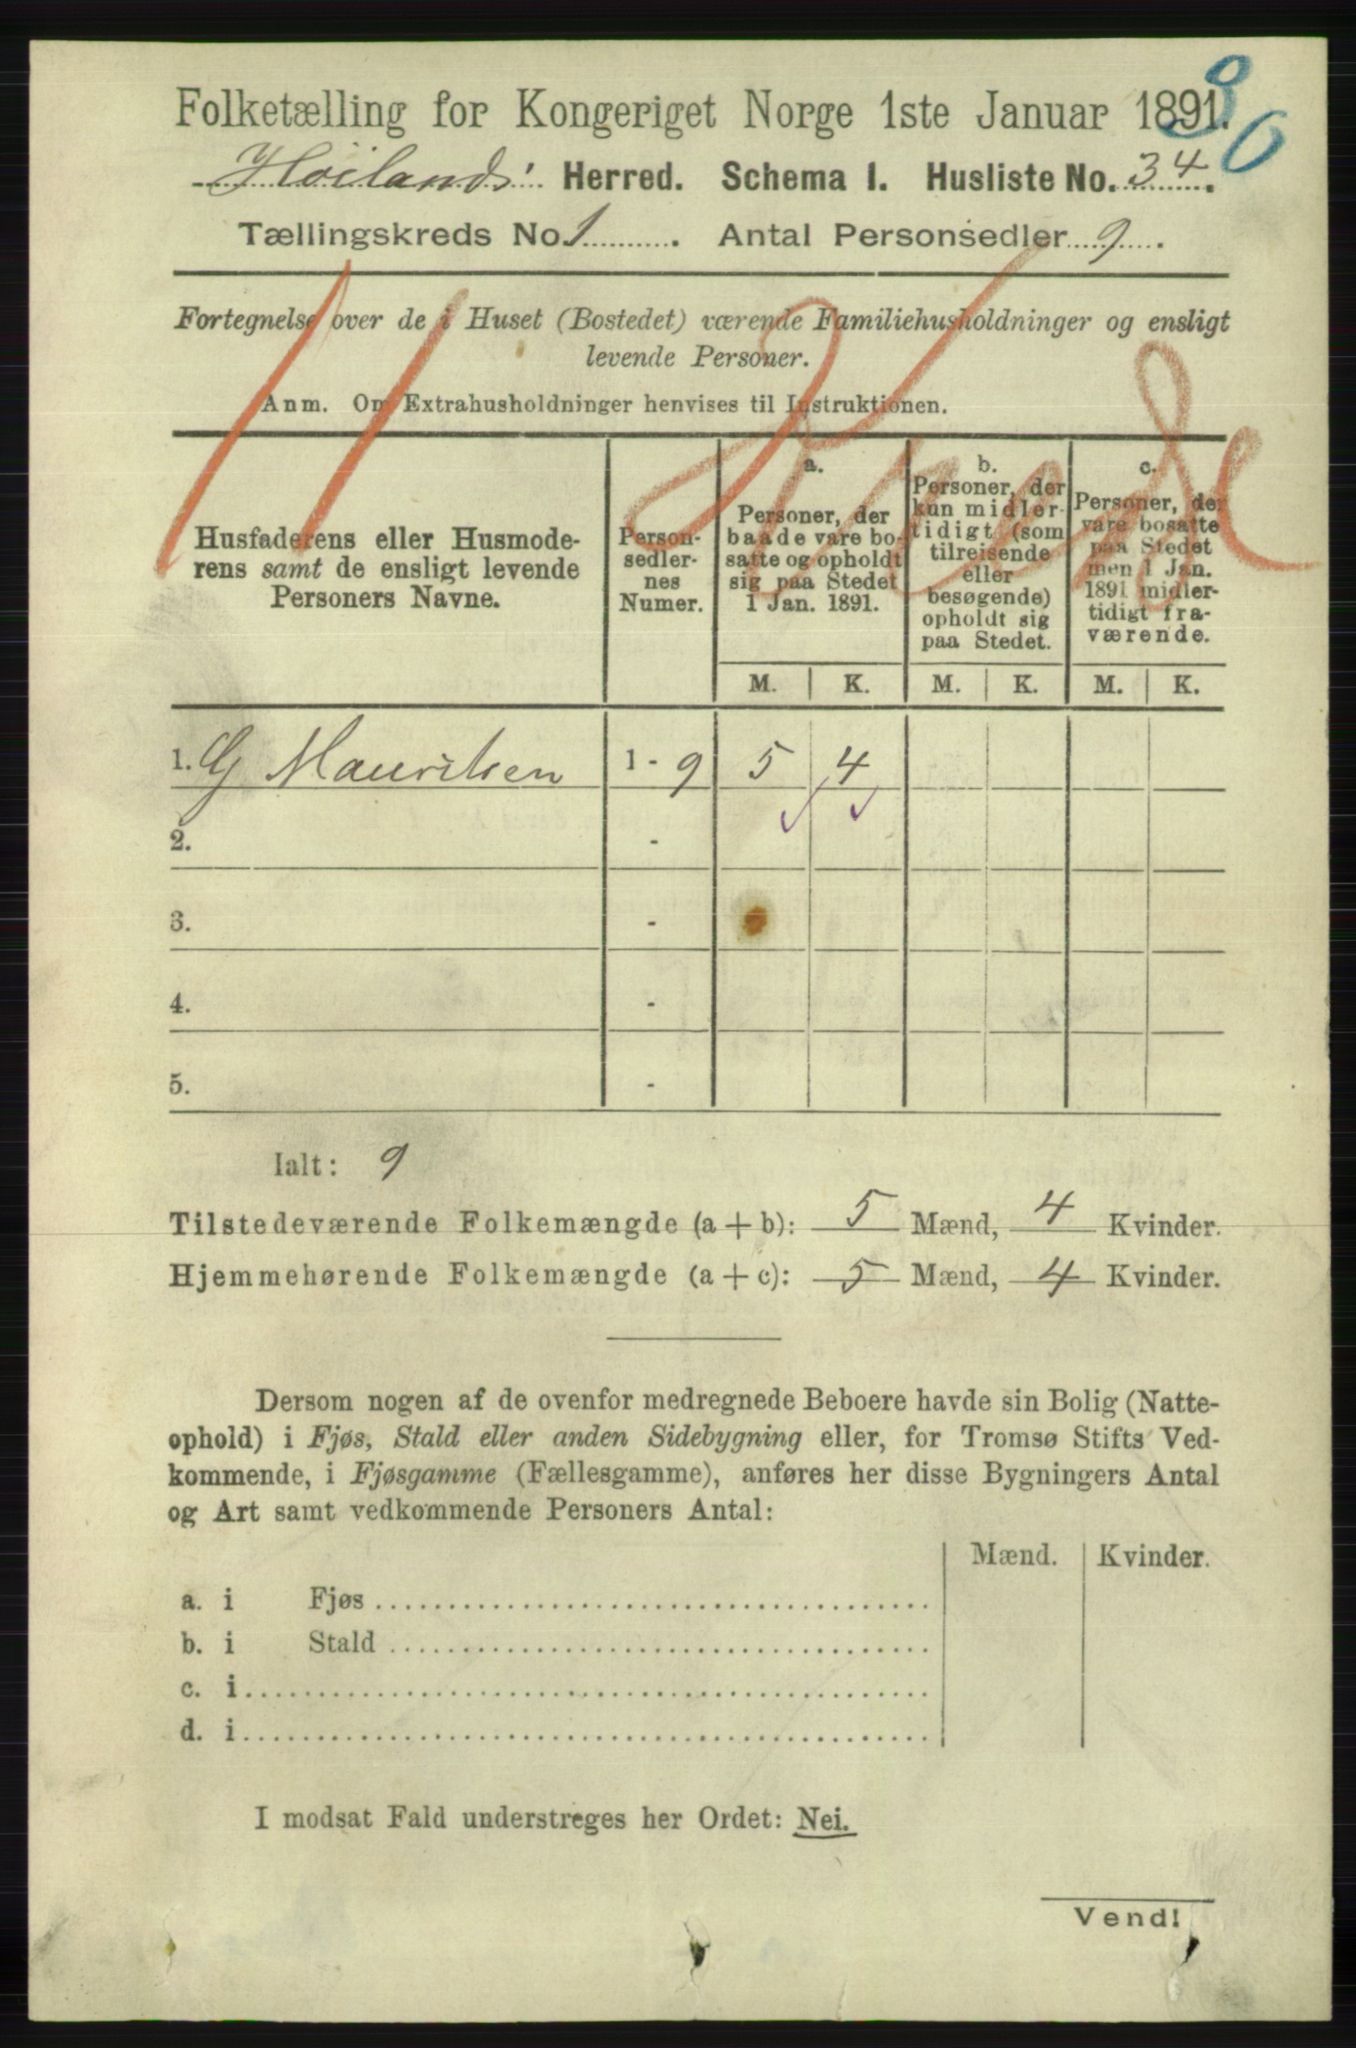 Folketælling for Kongeriget Norge 1ste Januar 1891.
30
Höilands Herred. Schema I. Husliste No. 34.
Tællingskreds No. 1. Antal Personsedler 9.
Fortegnelse over de i Huset (Bostedet) værende Familiehusholdninger og ensligt
levende Personer.
Anm. Om Extrahusholdninger henvises til Instruktionen.
Husfaderens eller Husmode-
rens samt de ensligt levende
Personers Navne.
Person-
sedler-
nes
Numer.
a.
Personer, der
baade vare bo-
satte og opholdt
sig paa Stedet
1 Jan. 1891.
b.
Personer, der
kun midler-
tidigt (som
tilreisende
eller
besøgende)
opholdt sig
paa Stedet.
c.
Personer, der
vare bosatte
paa Stedet
men 1 Jan.
1891 midler-
tidigt fra-
værende.
M. K. M. K. M. K.
1. G Mauritsen 1 - 9 5 4
2. -
3. -
4. -
5. -
Ialt: 9
Tilstedeværende Folkemængde (a + b): 5 Mænd, 4 Kvinder.
Hjemmehørende Folkemængde (a + c): 5 Mænd, 4 Kvinder.
Dersom nogen af de ovenfor medregnede Beboere havde sin Bolig (Natte-
ophold) i Fjøs, Stald eller anden Sidebygning eller, for Tromsø Stifts Ved-
kommende, i Fjøsgamme (Fællesgamme), anføres her disse Bygningers Antal
og Art samt vedkommende Personers Antal:
Mænd. Kvinder.
a. i Fjøs
b. i Stald
c. i
d. i
I modsat Fald understreges her Ordet: Nei.
Vend!